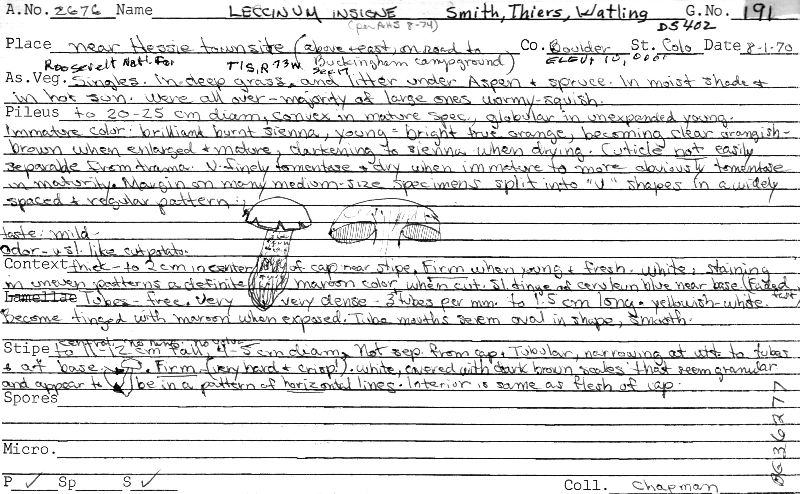 A.No. 2676 Name LECCINUM INSIGNE Smith, Thiers, Watling G.No. 191
(per AHS 8-74) DS402
Place near Hessie townsite (above + east, on road to Co. Boulder St. Colo Date 8-1-70
Roosevelt Natl. For T1S, R73W, Buckingham campground) ELEV. 10,000'
As.Veg. Singles. In deep grass, and litter under Aspen & spruce. In moist shade &
in hot sun. Were all over - majority of large ones wormy-squish.
Pileus to 20-25 cm diam, convex in mature spec, globular in unexpanded young.
Immature color: brilliant burnt sienna, young = bright true orange, becoming clear orangish-
brown when enlarged & mature, darkening to sienna when drying. Cuticle not easily
separable from trama. V. finely tomentose & dry when immature to more obviously tomentose
in maturity. Margin on many medium-size specimens split into "V" shapes in a widely
spaced & regular pattern.
taste: mild-
Odor - v sl. like cut potato.
Context thick - to 2 cm in center of cap near stipe. Firm when young & fresh. white, staining
in uneven patterns a definite maroon color when cut. Sl. tinge of cerulean blue near base (Faded
Lamellae Tubes - free. Very very dense - 3 tubes per mm. to 1.5 cm long. yellowish-white.
Become tinged with maroon when exposed. Tube mouths seem oval in shape, smooth.
central, no ring, no volva
Stipe to 11-12 cm tall, 1-5 cm diam, Not sep. from cap. Tubular, narrowing at att. to tubes
& at base. Firm (very hard & crisp!). white, covered with dark brown scales that seem granular
and appear to be in a pattern of horizontal lines. Interior is same as flesh of cap.
Spores
Micro.
P ✓ Sp S ✓ Coll. Chapman